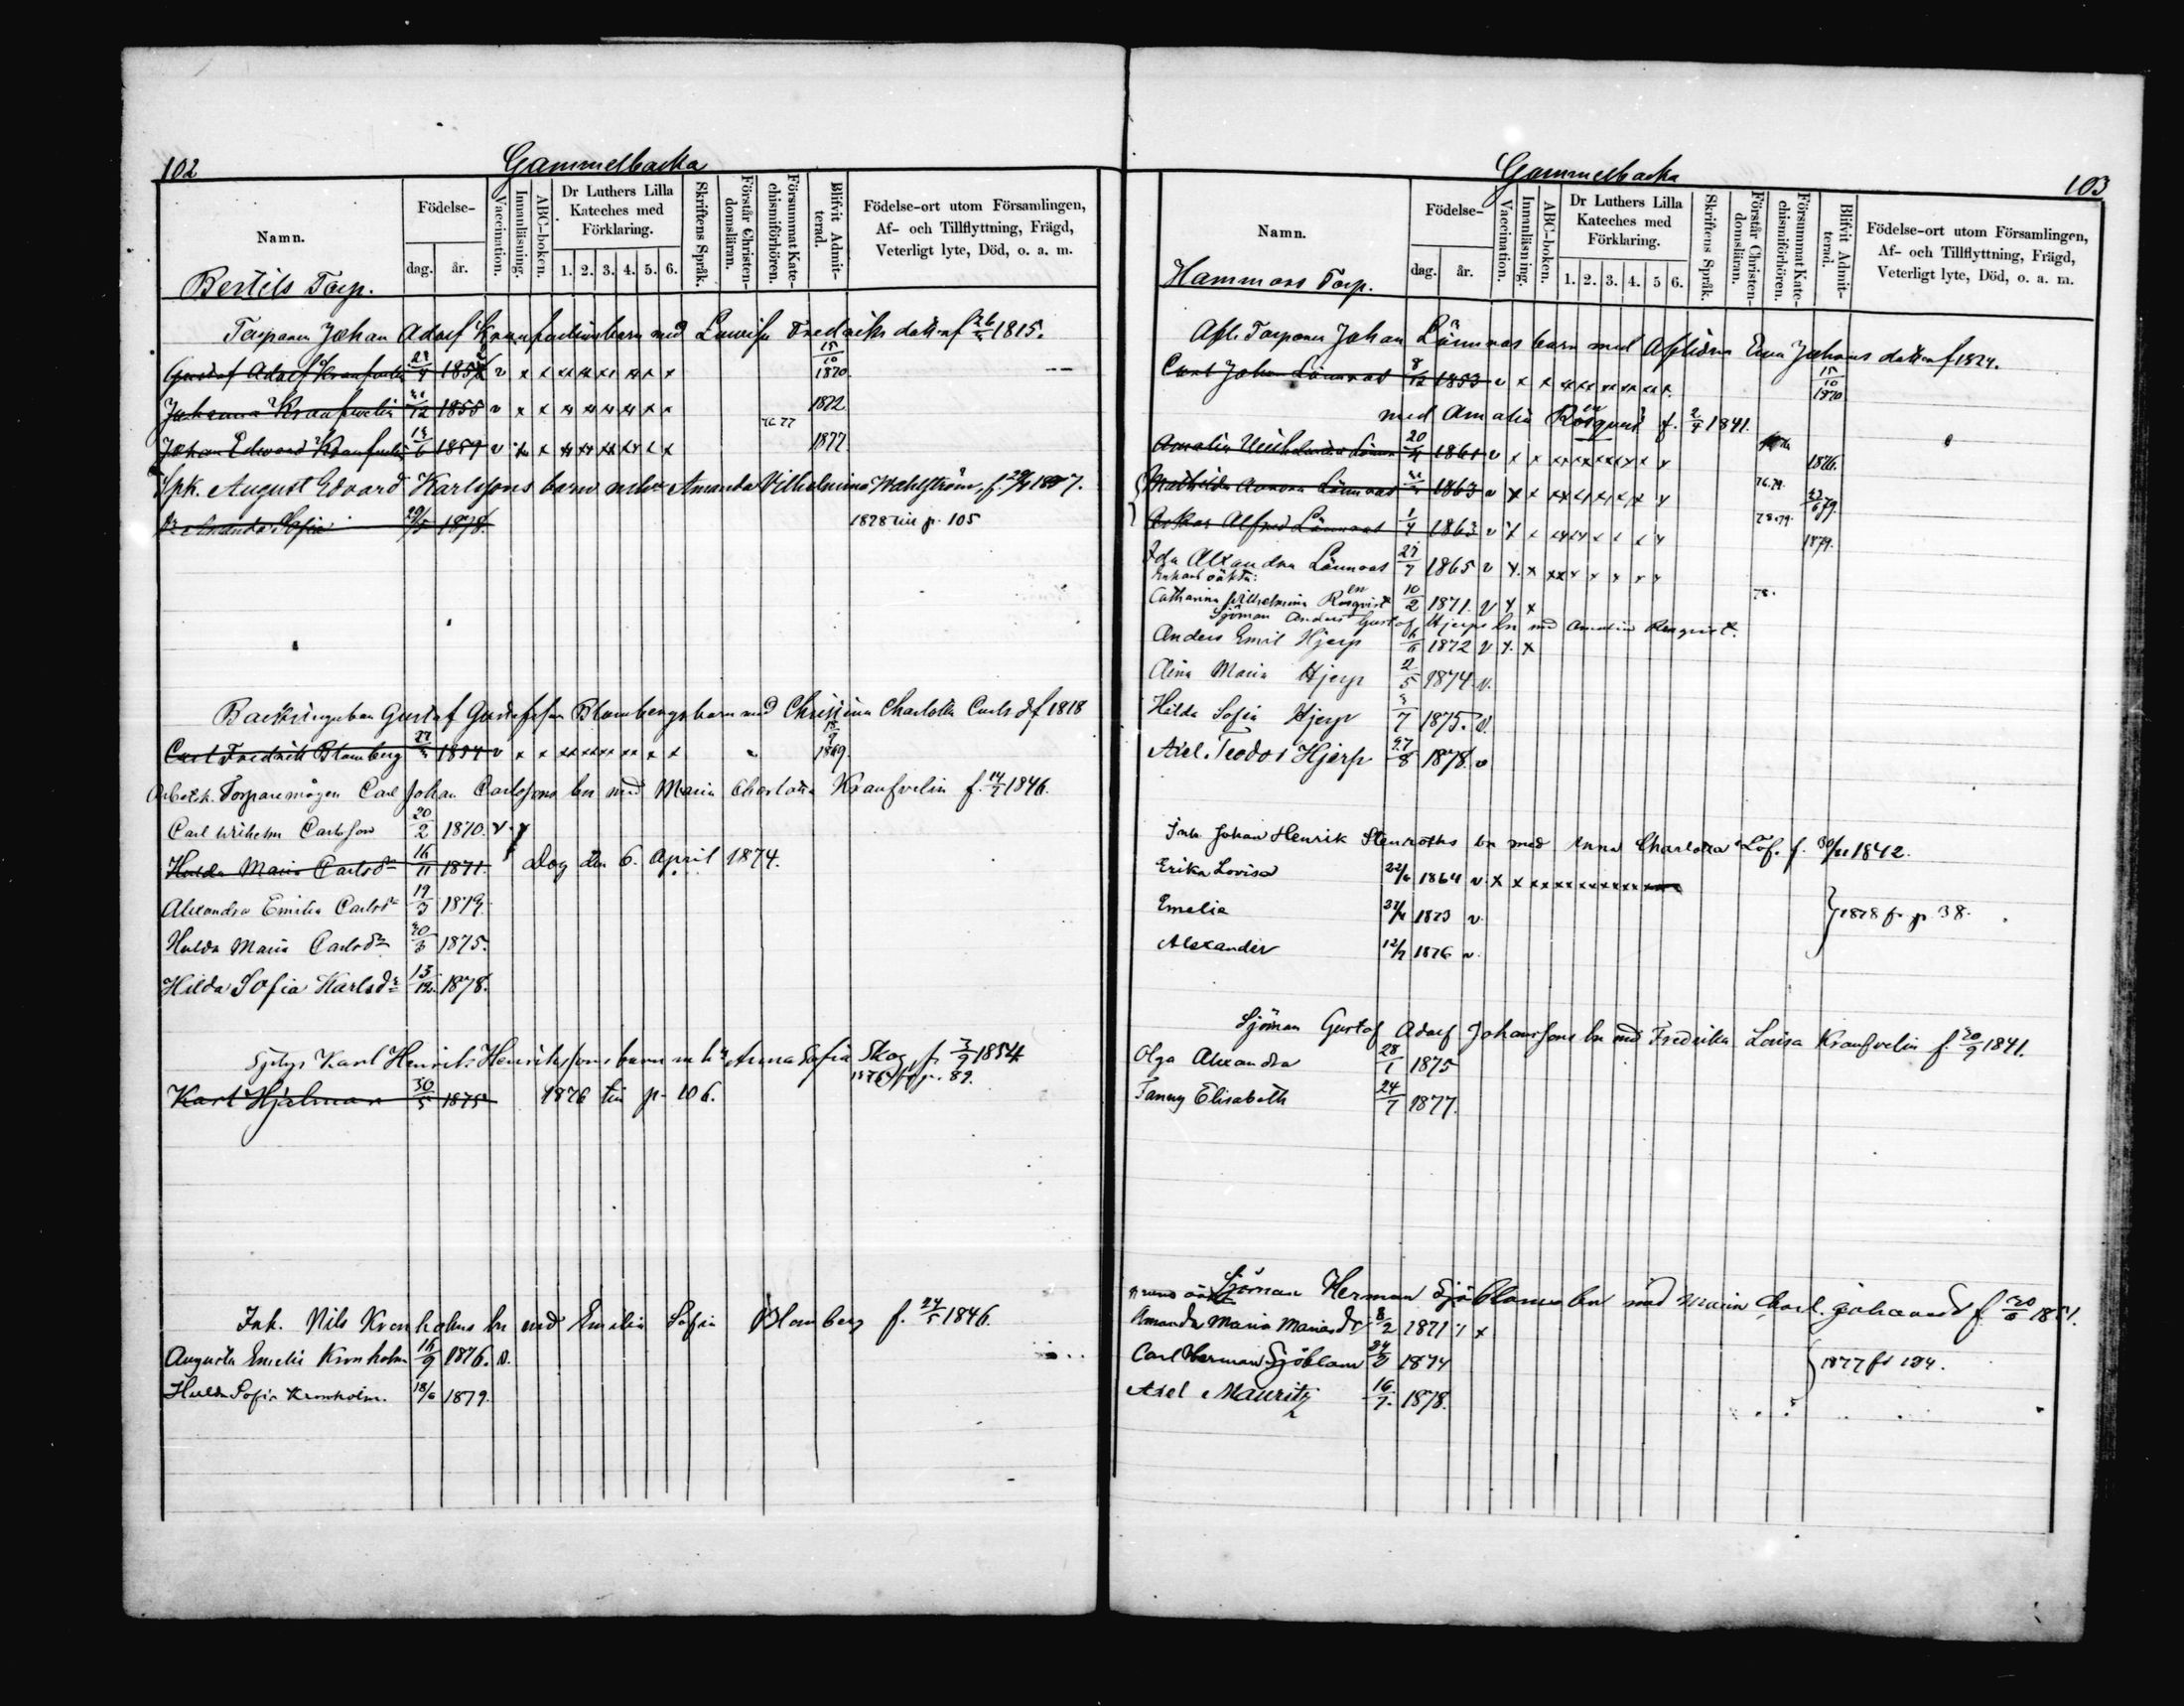 102
Gammelbacka
Namn.
Födelse-
dag. år.
Vaccination.
Innanläsning.
ABC-boken.
Dr Luthers Lilla Kateches med Förklaring.
1. 2. 3. 4. 5. 6.
Skriftens Språk.
Förstår Christen-domsläran.
Försummat Kate-chismiförhören.
Blifvit Admit-terad.
Födelse-ort utom Församlingen, Af- och Tillflyttning, Frägd, Veterligt lyte, Död, o. a. m.
Bertils Torp.
Torparen Johan Adolf Kraufvelins barn med Lovisa Fredriks dotter f 1815.
Gustaf Adolf Kraufvelin v x x 15/10 1870.
Johanna Kraufvelin 1855 v x x 1872
Johan Edvard Kraufvelin 13/6 1859 v x x 76 77 1877.
Spk. August Edvard Karlssons barn m hu Amanda Vilhelmina Wahlström, f.
Amanda Sofia 29/5 1878. 1878 till p. 105
Backstuguban Gustaf Gustafsson Blombergs barn med Christina Charlotta Carls d f 1818
Carl Fredrik Blomberg 1854 v x x 1869.
Arbetsk. Torparemågen Carl Johan Carlssons bn med Maria Charlotta Kraufvelin f. 1846.
Carl Wilhelm Carlsson 20/2 1870. v. y
Hulda Maria Carlsdr 16/11 1871. Dog den 6. April 1874.
Alexandra Emilia Carlsdr 19/3 1879.
Hulda Maria Carlsdr 1875.
Hilda Sofia Karlsdr 13/12. 1878.
Karl Henrik Henrikssons barn m hu Anna Sofia Skog f. 3/9 1854
1876 fr p. 89.
Karl Hjalmar 30/5 1875 1876 till p. 106.
Inh. Nils Kronholms bn med Emilia Sofia Blomberg f. 24/5 1846.
Augusta Emelie Kronholm 16/9 1876. v.
Hulda Sofia Kronholm. 18/6 1879.
Gammelbacka
103
Namn.
Födelse-
dag. år.
Vaccination.
Innanläsning.
ABC-boken.
Dr Luthers Lilla Kateches med Förklaring.
1. 2. 3. 4. 5 6.
Skriftens Språk.
Förstår Christen-domsläran.
Försummat Kate-chismiförhören.
Blifvit Admit-terad.
Födelse-ort utom Församlingen, Af- och Tillflyttning, Frägd, Veterligt lyte, Död, o. a. m.
Hammars Torp.
Afl. Torparen Johan Lönnroos barn med Aflidna Eva Johans dotter f 1824.
Carl Johan Lönnroos 8/12 1853 v x x 15/10 1870
med Amalia Rosqvist f. 2/4 1841.
Amalia Lönnroos 1861 v x x 1876.
Mathilda Aurora Lönnroos 1863 v x x 76.79.
Oskar Alfred Lönnroos 1/4 1863 v x 78.79. 1879.
Ida Alexandra Lönnroos 27/7 1865 v x. x
Enkans oäkta:
Catharina Wilhelmina Rosqvist 10/2 1871. v x x 78.
Sjöman Anders Gustaf Hjerps bn med Amalia Rosqvist.
Anders Emil Hjerp 6/11 1872 v x. x
Alina Maria Hjerp 2/5 1874. v.
Hilda Sofia Hjerp 1875. v.
Axel Teodor Hjerp 27/8 1878. v
Inh. Johan Henrik Stenroths bn med Anna Charlotta Löf. f. 1842.
Erika Lovisa 1864 v. x x
Emelia 1873 v.
Alexander 12/7 1876 v.
1878 fr p. 38.
Sjöman Gustaf Adolf Johanssons bn med Fredrika Lovisa Kraufvelin f. 20/9 1841.
Olga Alexandra 28/1 1875
Fanny Elisabeth 24/7 1877.
Sjöman Herman Sjöbloms bn med Maria Charl. Johansd f
Amanda Maria Mariasdr 8/2 1871 x
Carl Herman Sjöblom 1874
1877 fr 134.
Axel Mauritz 16/7. 1878.